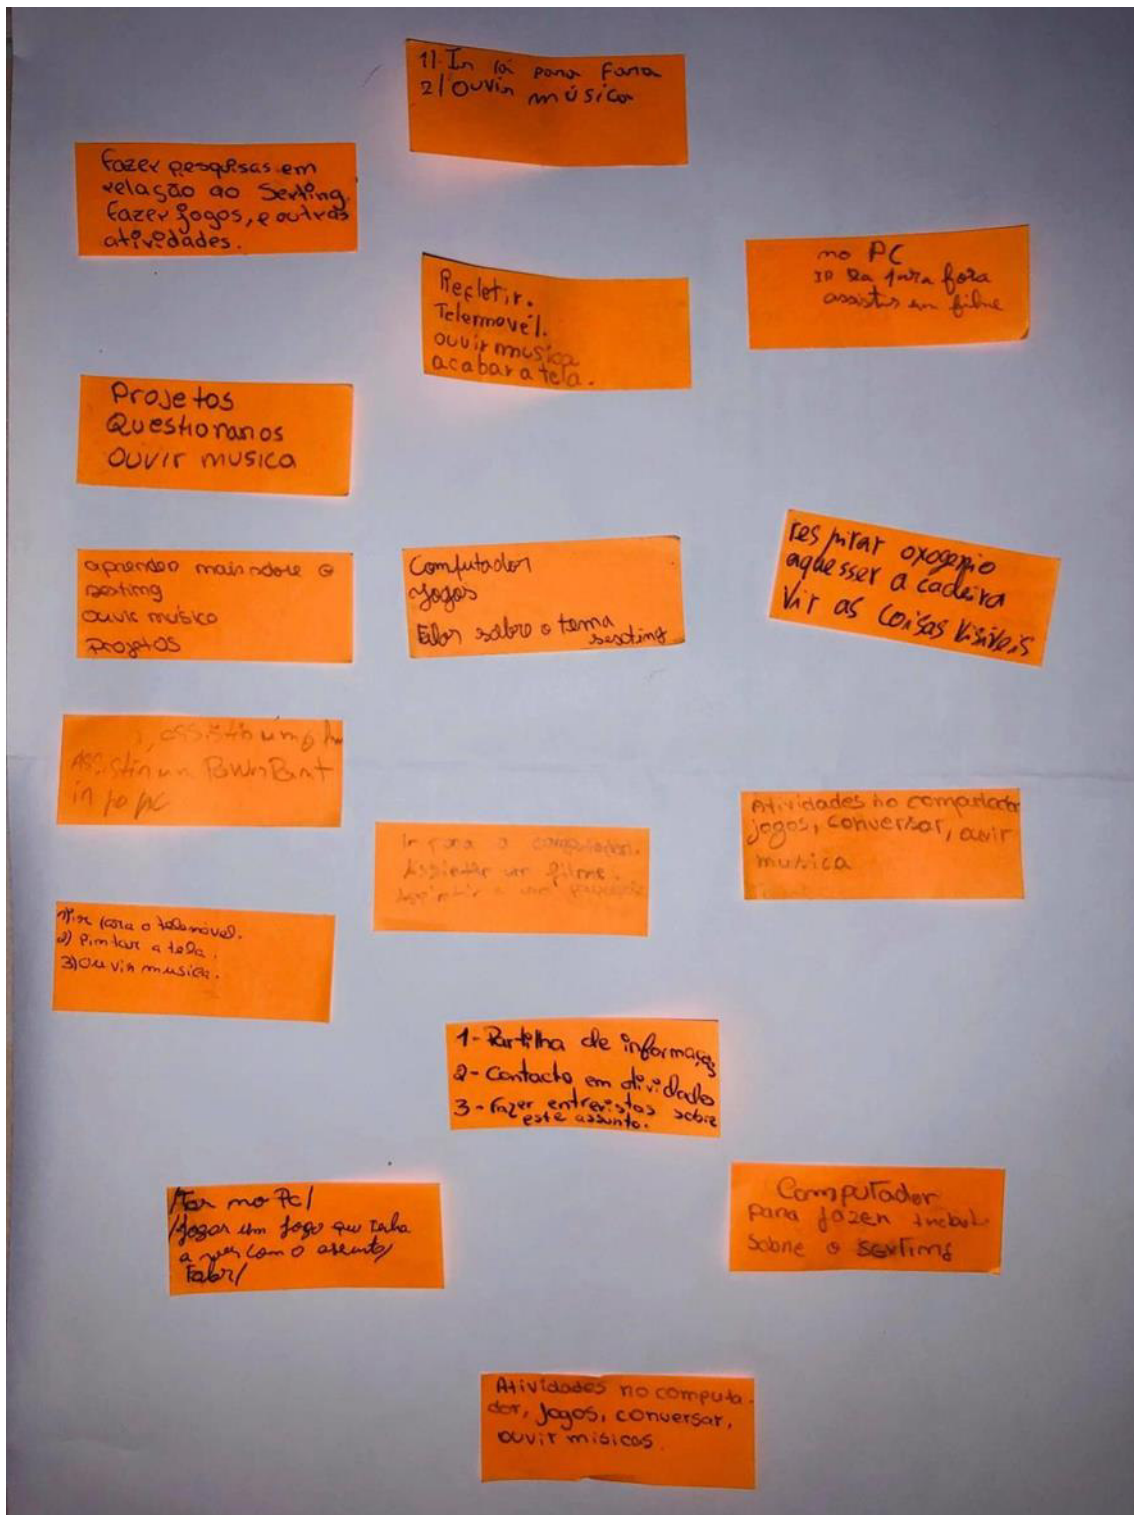 1) Ir lá para fora
2) Ouvir música
Fazer pesquisas em
relação ao Sexting,
fazer jogos, e outras
atividades.
Refletir.
Telemovél.
ouvir musica
acabar a tela.
no PC
IR lá para fora
assistir um filme
Projetos
Questionarios
Ouvir musica
aprender mais sobre o
sexting
ouvir músico
projetos
Computador
Jogos
Falar sobre o tema
sexting
respirar oxogenio
aquesser a cadeira
Vir as coisas visiveis
assistir um
Assistir um PowerPoint
ir po pc
Ir para o computador.
Assistir um filme.
Assistir a um
Atividades no computador
jogos, conversar, ouvir
musica
1) ir para o telemóvel.
2) Pintar a tela.
3) Ouvir musica.
1- Partilha de informação
2- Contacto em atividade
3- Fazer entrevistas sobre
este assunto.
/Tar no Pc/
/Jogar um jogo que tenha
a ver com o assunto/
Falar/
Computador
para fazer
sobre o sexting
Atividades no computa-
dor, jogos, conversar,
ouvir músicas.